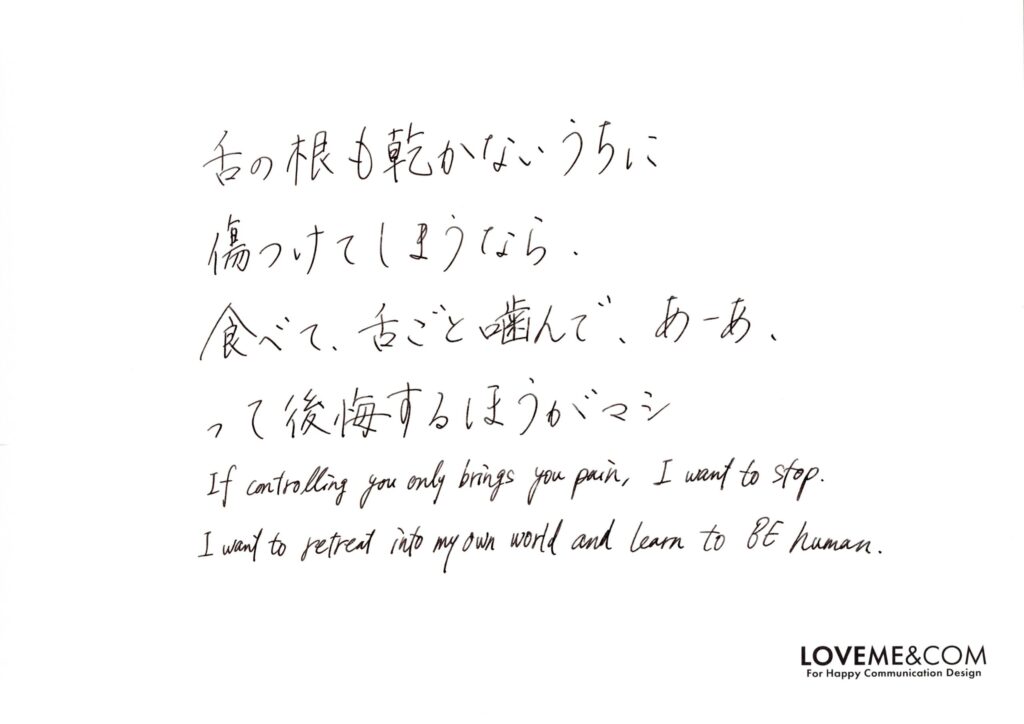 舌の根も乾かないうちに
傷つけてしまうなら、
食べて、舌ごと噛んで、あーあ、
って後悔するほうがマシ
If controlling you only brings you pain, I want to stop.
I want to retreat into my own world and learn to BE human.
LOVEME&COM
For Happy Communication Design